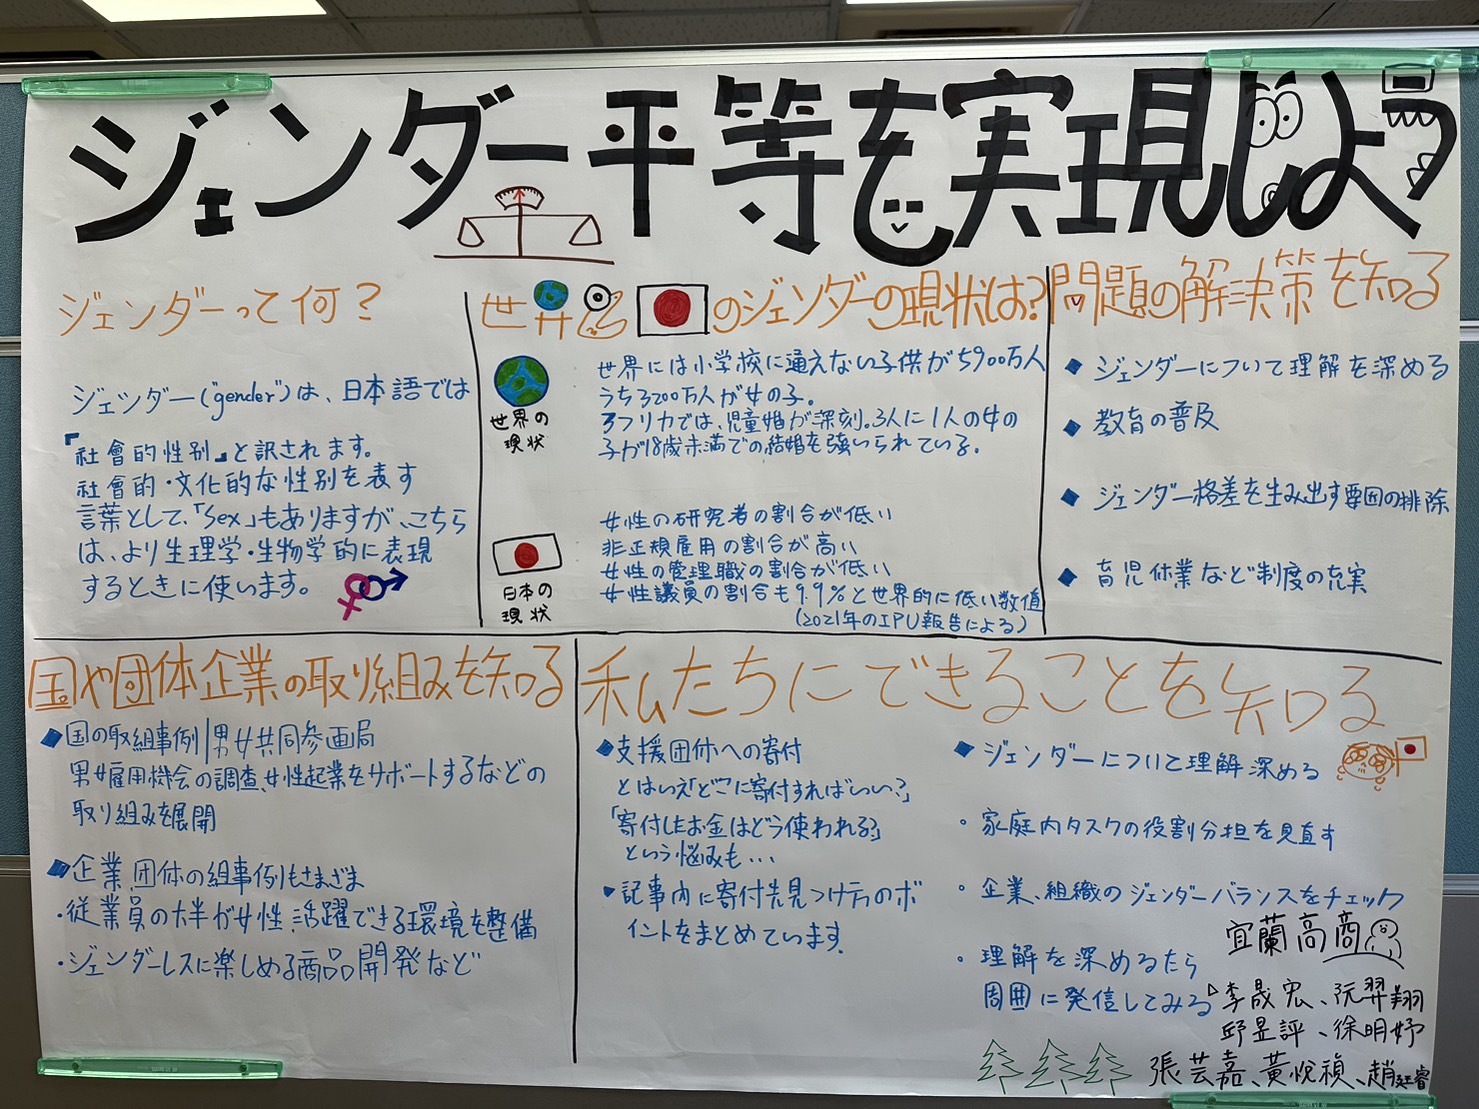 ジェンダー平等を実現しよう
ジェンダーって何？
ジェンダー("gender")は、日本語では
『社會的性別』と訳されます。
社會的・文化的な性別を表す
言葉として、「Sex」もありますが、こちら
は、より生理学・生物学的に表現
するときに使います。
世界のジェンダーの現状は?
世界の
現状
世界には小学校に通えない子供が5900万人
うち3200万人が女の子。
アフリカでは、児童婚が深刻。3人に1人の女の
子が18歳未満での結婚を強いられている。
日本の
現状
女性の研究者の割合が低い
非正規雇用の割合が高い
女性の管理職の割合が低い
女性議員の割合も9.9%と世界的に低い数値
(2021年のIPU報告による)
問題の解決策を知る
◆ジェンダーについて理解を深める
◆教育の普及
◆ジェンダー格差を生み出す要因の排除
◆育児休業など制度の充実
国や団体企業の取り組みを知る
◆国の取組事例|男女共同参画局
男女雇用機会の調査、女性起業をサポートするなどの
取り組みを展開
◆企業、団体の組事例もさまざま
・従業員の大半が女性、活躍できる環境を整備
・ジェンダーレスに楽しめる商品開発など
私たちにできることを知る
◆支援団体への寄付
とはいえ「どこに寄付すればいい?」
「寄付したお金はどう使われる?」
という悩みも...
・記事内に寄付先見つけ方のポ
イントをまとめています.
◆ジェンダーについて理解深める
・家庭内タスクの役割分担を見直す
・企業、組織のジェンダーバランスをチェック
・理解を深めるたら
周囲に発信してみる
宜蘭高商
李晟宏、阮羿翔
邱昱評、徐明妤
張芸嘉、黃悅禎、趙